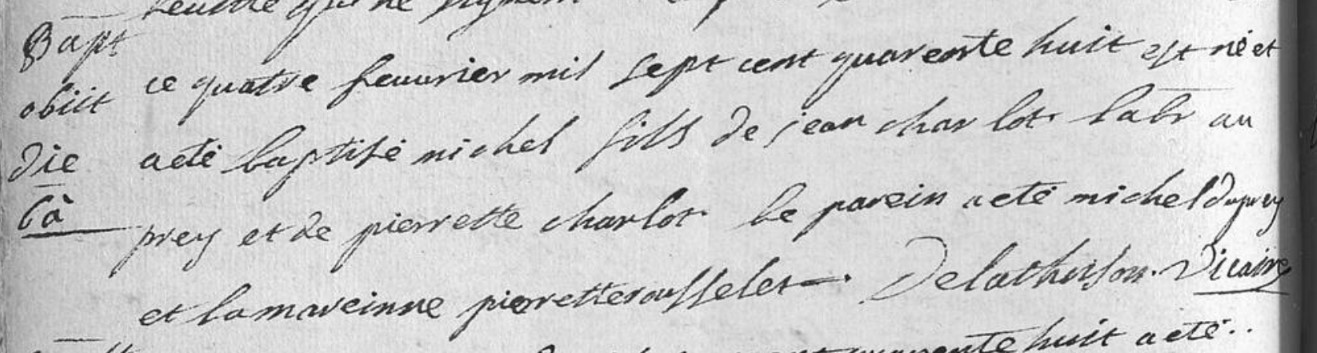 qui ne
Bapt
obiit
die
6à
ce quatre feuvrier mil sept cent quarente huit est né et
a eté baptisé michel fils de jean charlot labr au
prey et de pierrette charlot le parein a eté michel duprey
et la mareinne pierrette rousselet Delathuison Vicaire
quarente huit a eté